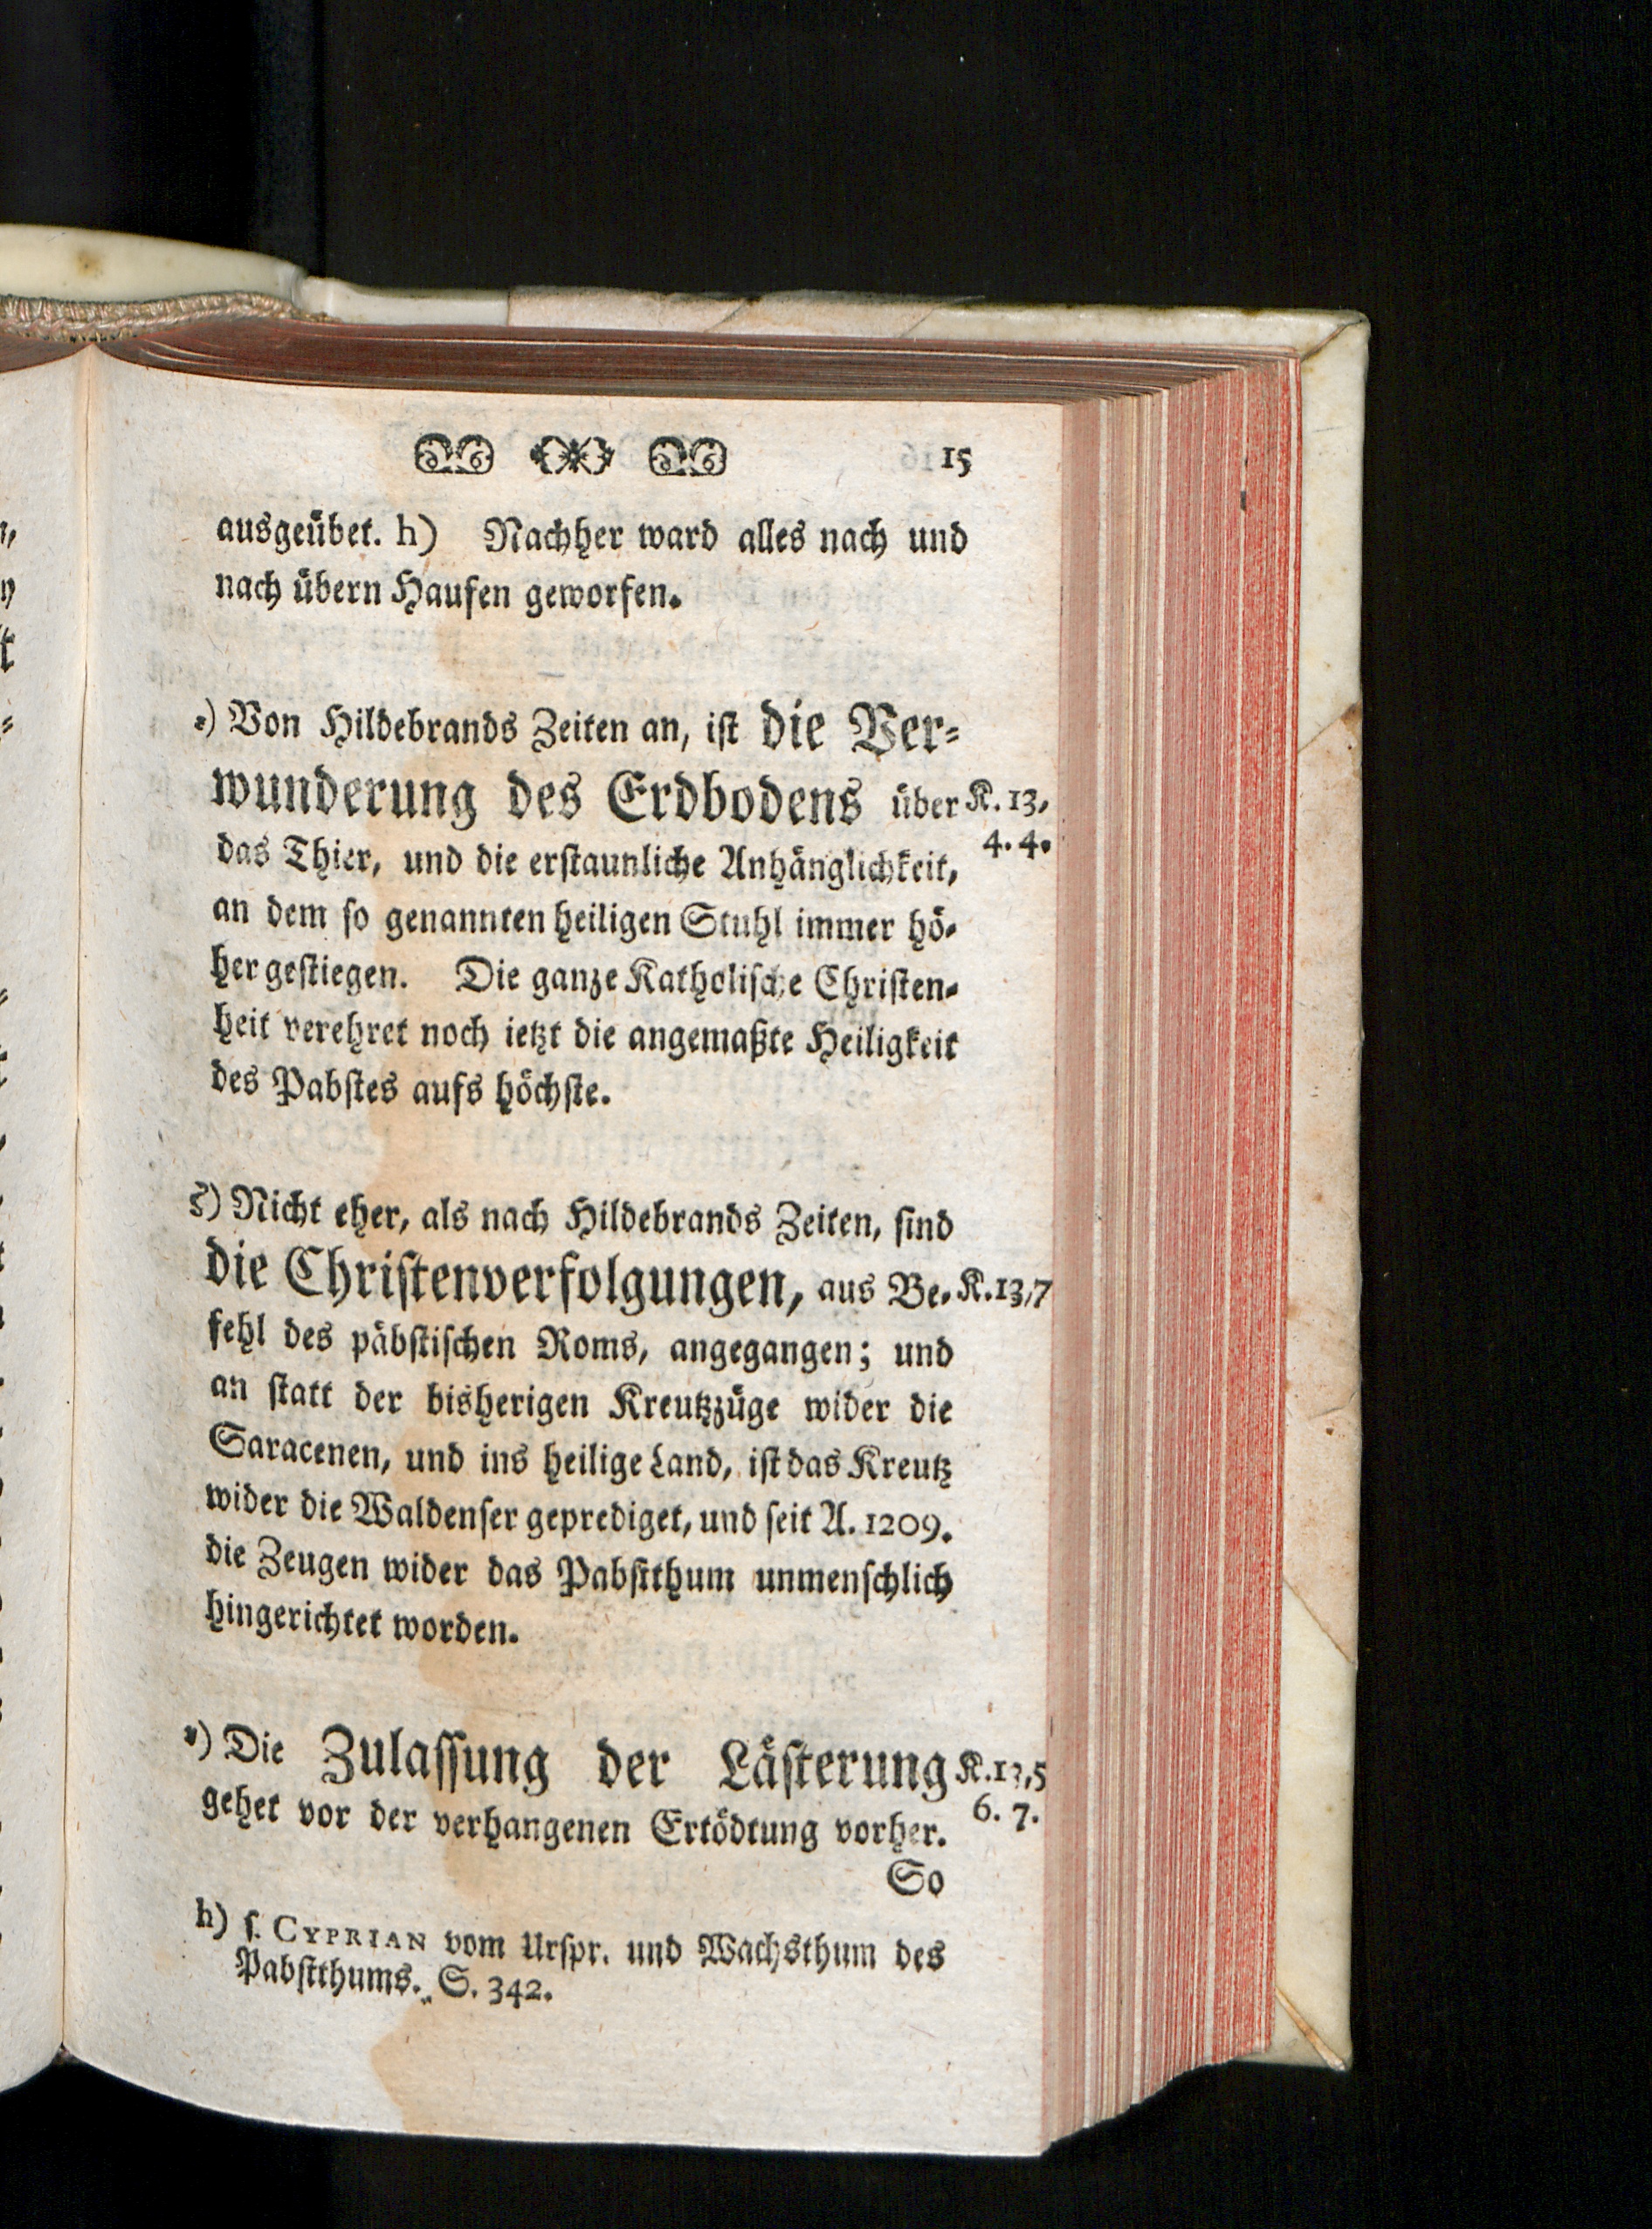 15
ausgeübet. h) Nachher ward alles nach und
nach übern Haufen geworfen.
ε) Von Hildebrands Zeiten an, ist die Ver-
wunderung des Erdbodens über K. 13,
das Thier, und die erstaunliche Anhänglichkeit, 4. 4.
an dem so genannten heiligen Stuhl immer hö-
her gestiegen. Die ganze Katholische Christen-
heit verehret noch ietzt die angemaßte Heiligkeit
des Pabstes aufs höchste.
ζ) Nicht eher, als nach Hildebrands Zeiten, sind
die Christenverfolgungen, aus Be- K. 13,7
fehl des päbstischen Roms, angegangen; und
an statt der bisherigen Kreutzzüge wider die
Saracenen, und ins heilige Land, ist das Kreutz
wider die Waldenser geprediget, und seit A. 1209.
die Zeugen wider das Pabstthum unmenschlich
hingerichtet worden.
η) Die Zulassung der Lästerung K. 13,5
gehet vor der verhangenen Ertödtung vorher. 6. 7.
So
h) s. CYPRIAN vom Urspr. und Wachsthum des
Pabstthums. S. 342.